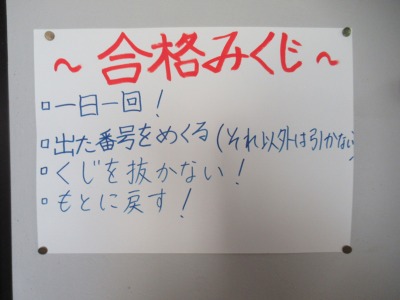 ～合格みくじ～
▫一日一回！
▫出た番号をめくる(それ以外は引かない)
▫くじを抜かない！
▫もとに戻す！